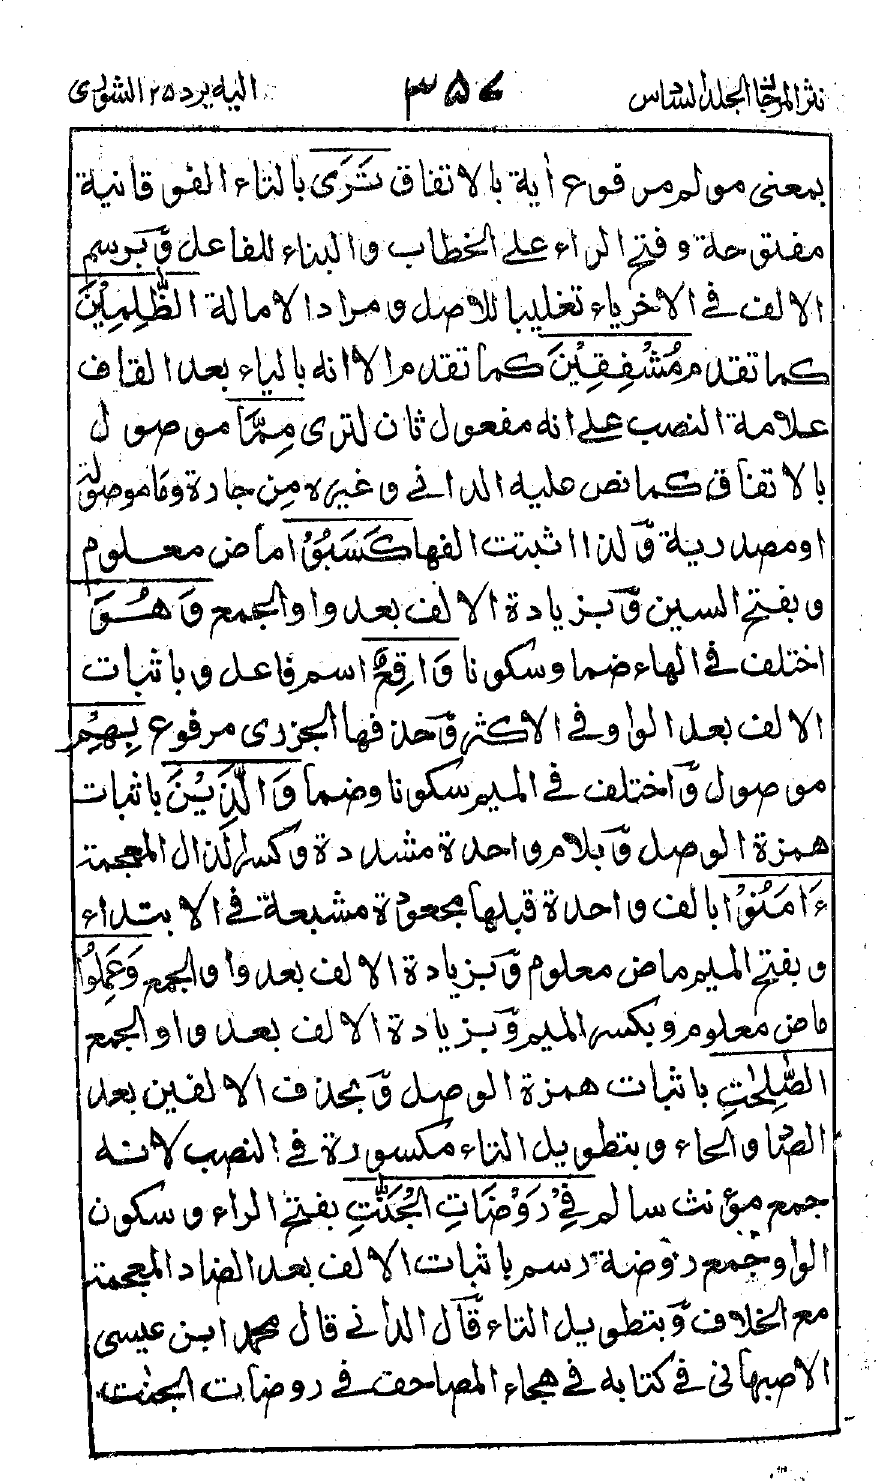 نثر المرجان الجلد السادس ٣٥٧ اليه يرد ٢٥ الشورى
بمعنى مولم مرفوع أية بالاتفاق تَرَى بالتاء الفوقانية
مفتوحة وفتح الراء على الخطاب والبناء للفاعل وَبرسم
الالف فى الاخر ياء تغليبا للاصل ومراد الامالة الظّٰلِمِيْنَ
كما تقدم مُشْفِقِيْنَ كما تقدم الا انه بالياء بعد القاف
علامة النصب على انه مفعول ثان لترى مِمَّا موصول
بالاتفاق كما نص عليه الدانى وغيره مِن جارة ومَا موصولة
او مصدرية وَلذا اثبتت الفها كَسَبُوْا ماض معلوم
وبفتح السين وَبزيادة الالف بعد واو الجمع وَهُوَ
اختلف فى الهاء ضما وسكونا وَاقِعٌ اسم فاعل وباثبات
الالف بعد الواو فى الاكثر وَحذفها الجزرى مرفوع بِهِمْ
موصول وَاختلف فى الميم سكونا وضما وَالَّذِيْنَ باثبات
همزة الوصل وَبلام واحدة مشددة وكسر الذال المعجمة
ءَامَنُوْا بالف واحدة قبلها مجعودة مشبعة فى الابتداء
وبفتح الميم ماض معلوم وَبزيادة الالف بعد واو الجمع وَعَمِلُوا
ماض معلوم وبكسر الميم وَبزيادة الالف بعد واو الجمع
الصّٰلِحٰتِ باثبات همزة الوصل وَبحذف الالفين بعد
الصاد والحاء وبتطويل التاء مكسورة فى النصب لانه
جمع مؤنث سالم فِيْ رَوْضَاتِ الْجَنّٰتِ بفتح الراء وسكون
الواو جمع روضة رسم باثبات الالف بعد الضاد المعجمة
مع الخلاف وَبتطويل التاء قَال الدانى قال محمد ابن عيسى
الاصبهانى فى كتابه فى هجاء المصاحف فى روضات الجنٰت